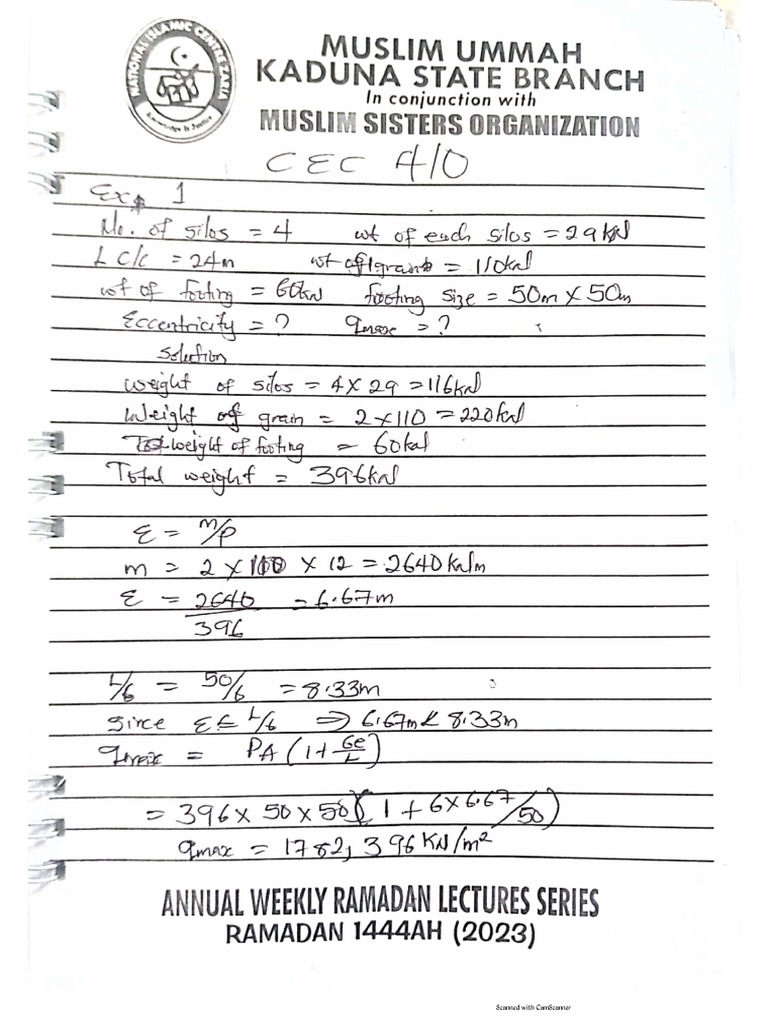 NATIONAL ISLAMIC CENTRE ZARIA
Knowledge is Justice
MUSLIM UMMAH
KADUNA STATE BRANCH
In conjunction with
MUSLIM SISTERS ORGANIZATION
CEC 410
Ex 1
No. of silos = 4 wt of each silos = 29kN
L c/c = 24m wt of grain = 110kN
wt of footing = 60kN footing size = 50m x 50m
Eccentricity = ? qmax = ?
Solution
weight of silos = 4 x 29 = 116kN
Weight of grain = 2 x 110 = 220kN
weight of footing = 60kN
Total weight = 396kN
ε = m/p
m = 2 x 110 x 12 = 2640kNm
ε = 2640/396 = 6.67m
L/6 = 50/6 = 8.33m
since ε ≤ L/6 ⇒ 6.67m < 8.33m
qmax = PA (1 + 6e/L)
= 396 x 50 x 50 (1 + 6 x 6.67/50)
qmax = 1782, 396 KN/m²
ANNUAL WEEKLY RAMADAN LECTURES SERIES
RAMADAN 1444AH (2023)
Scanned with CamScanner